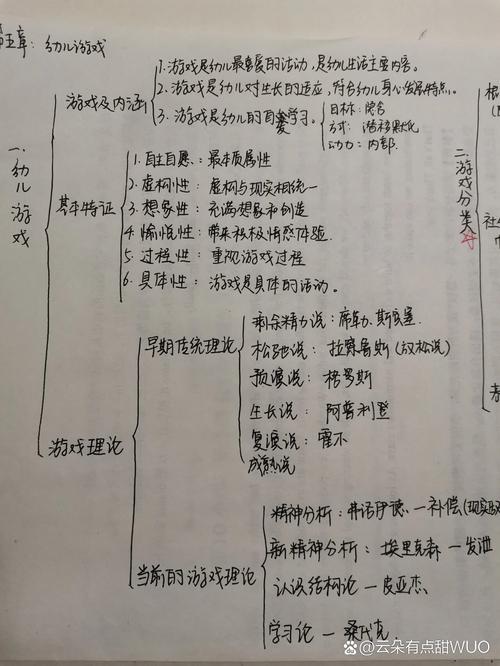 第五章：幼儿游戏
一、幼儿游戏
游戏及内涵
1. 游戏是幼儿最喜爱的活动，是幼儿生活主要内容。
2. 游戏是幼儿对生长的适应，符合幼儿身心发展特点。
3. 游戏是幼儿的自发学习。
目标：隐含
方式：潜移默化
动力：内部.
基本特征
1. 自主自愿：最本质属性
2. 虚构性：虚构与现实相统一
3. 想象性：充满想象和创造
4. 愉悦性：带来积极情感体验.
5. 过程性：重视游戏过程
6. 具体性：游戏是具体的活动。
游戏理论
早期传统理论
剩余精力说：席勒、斯宾塞.
松弛说：拉察鲁斯（放松说）
预演说：格罗斯
生长说：阿普利登
复演说：霍尔
成熟说
当前的游戏理论
精神分析：弗洛伊德、—补偿（现实
新精神分析：埃里克森—发泄
认识结构论—皮亚杰.
学习论—桑代克.
二、游戏分类
根
社
@云朵有点甜WUO